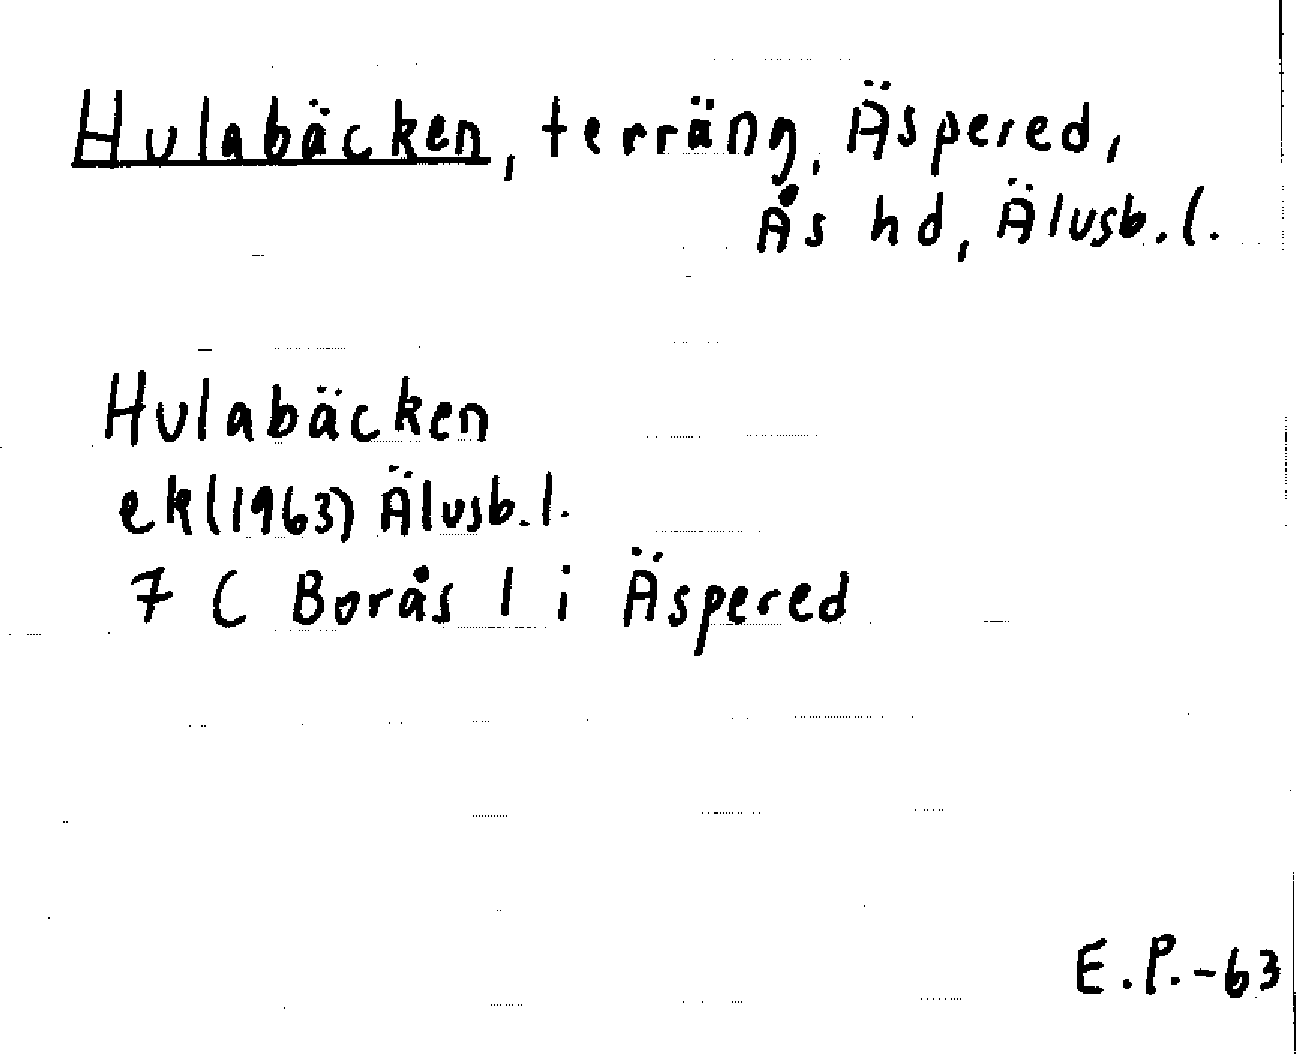 Hulabäcken, terräng, Äspered,
Ås hd, Älvsb. l.
Hulabäcken
ek (1963) Älvsb. l.
7 C Borås 1 i Äspered
E. P. - 63